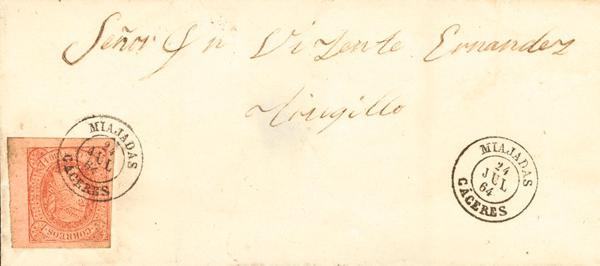 Señor Dn Vizente Ernandez
Trugillo
MIAJADAS
24
JUL
64
CACERES
MIAJADAS
24
JUL
64
CACERES
CORREOS